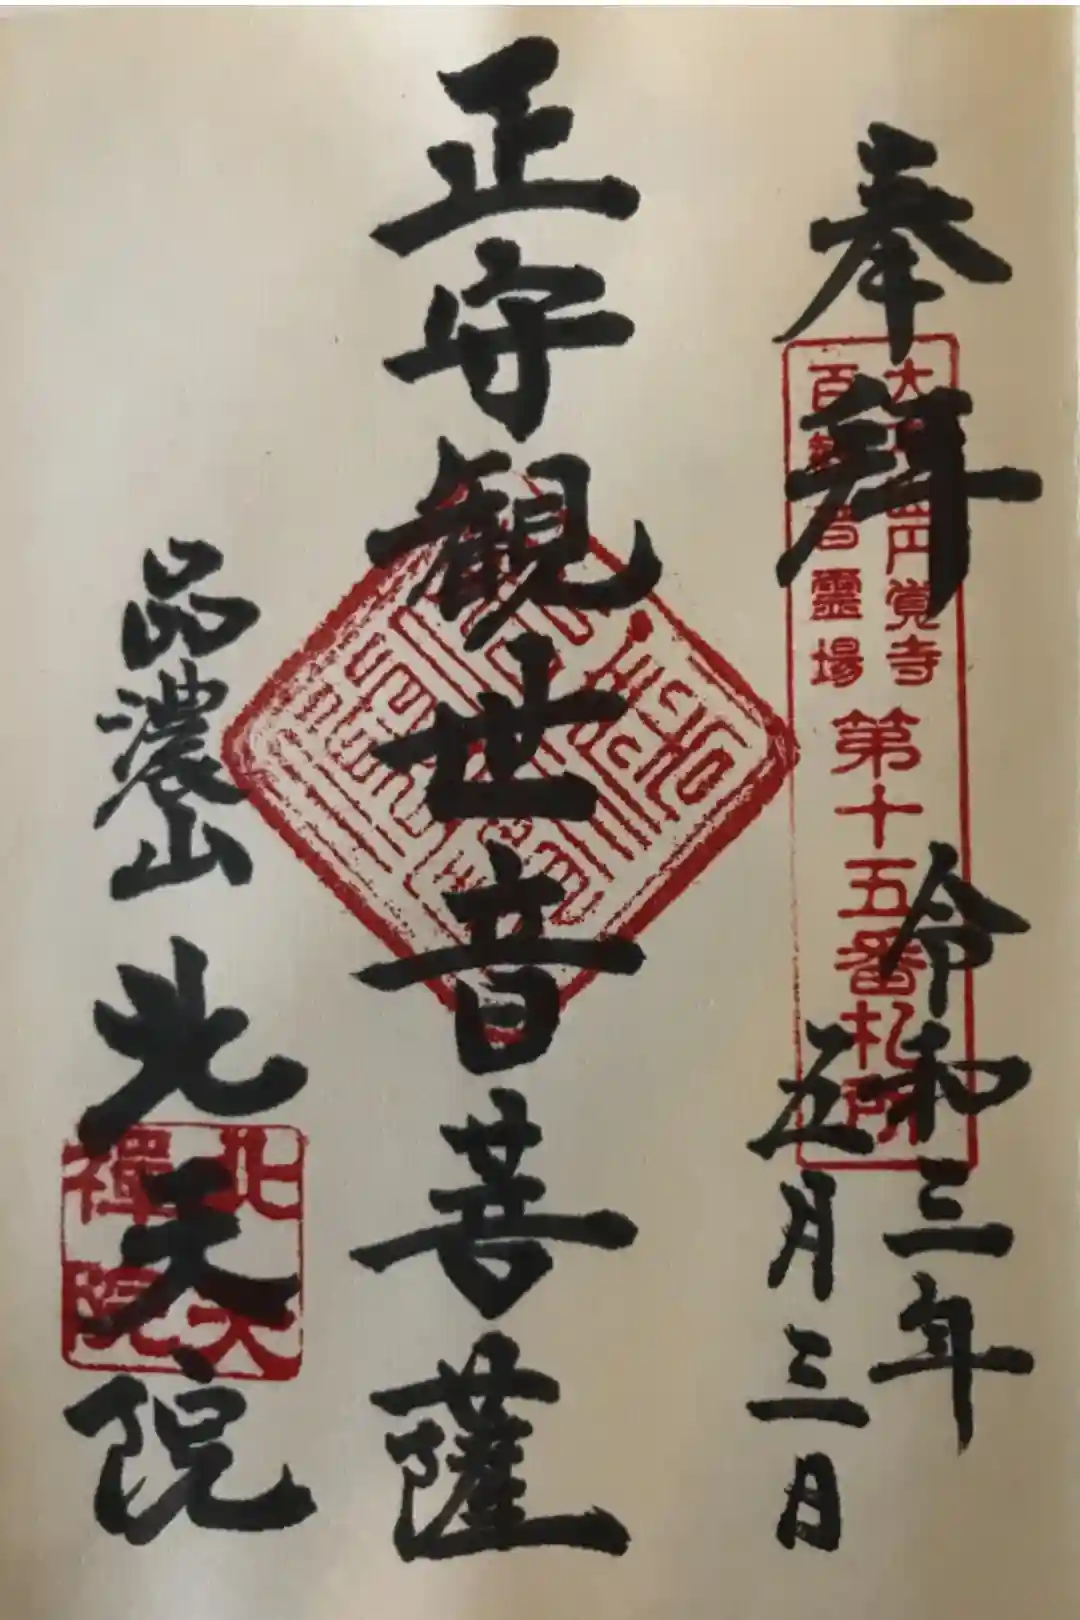 奉拝
大本山円覚寺
百観音霊場
第十五番札所
令和三年
五月三日
正守観世音菩薩
品濃山
北天院
北天
禅院